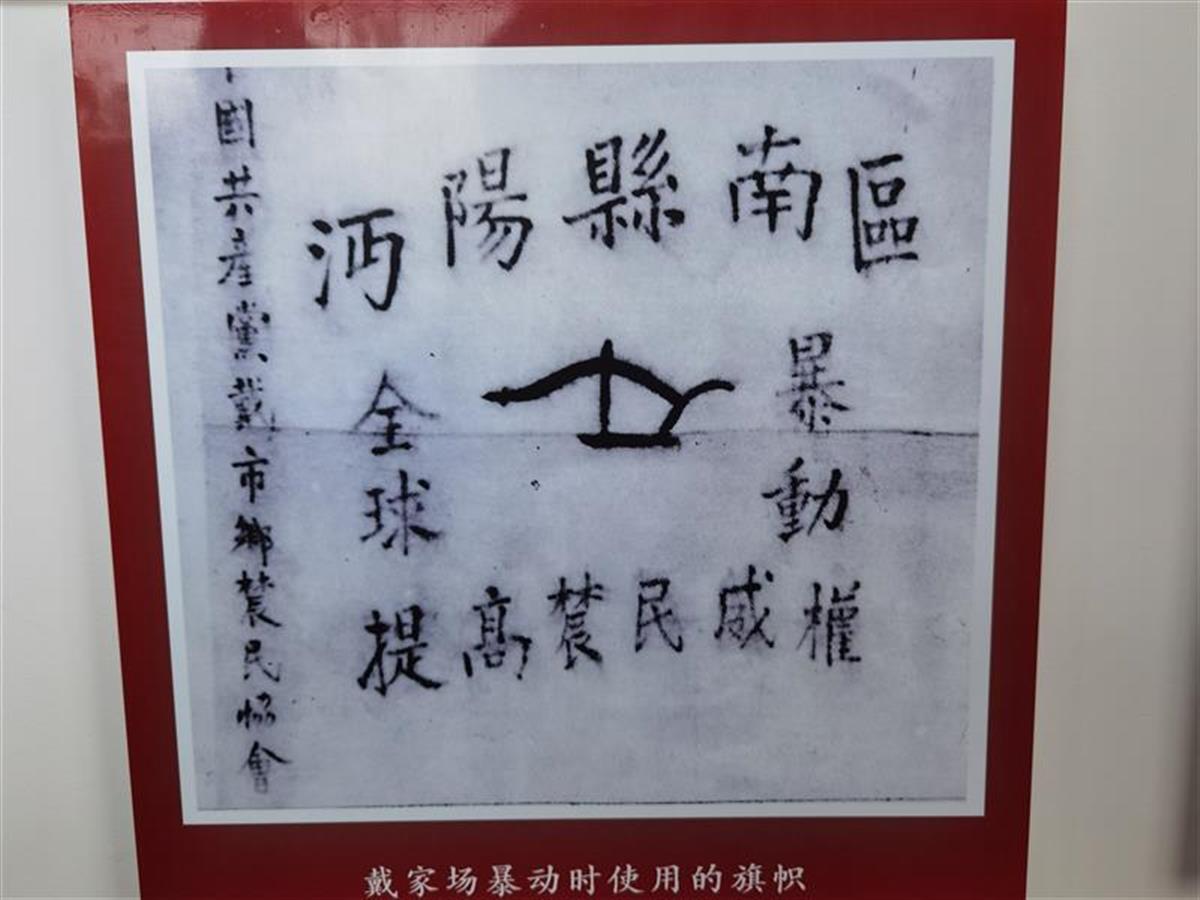 國共產黨戴市鄉辳民恊會
沔陽縣南區
暴動
全球
提髙辳民威權
戴家场暴动时使用的旗帜